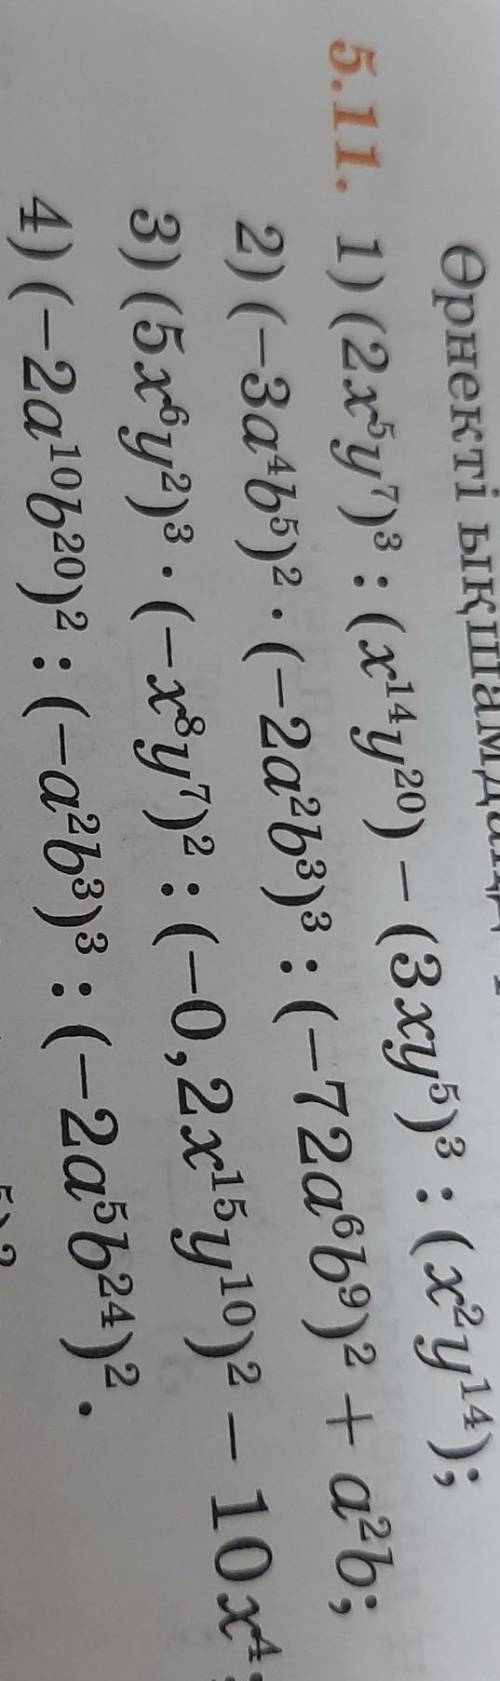 Өрнекті ықшамдаңд
5.11. 1) (2x⁵y⁷)³ : (x¹⁴y²⁰) – (3xy⁵)³ : (x²y¹⁴);
2) (–3a⁴b⁵)² · (–2a²b³)³ : (–72a⁶b⁹)² + a²b;
3) (5x⁶y²)³ · (–x⁸y⁷)² : (–0,2x¹⁵y¹⁰)² – 10x⁴;
4) (–2a¹⁰b²⁰)² : (–a²b³)³ : (–2a⁵b²⁴)².